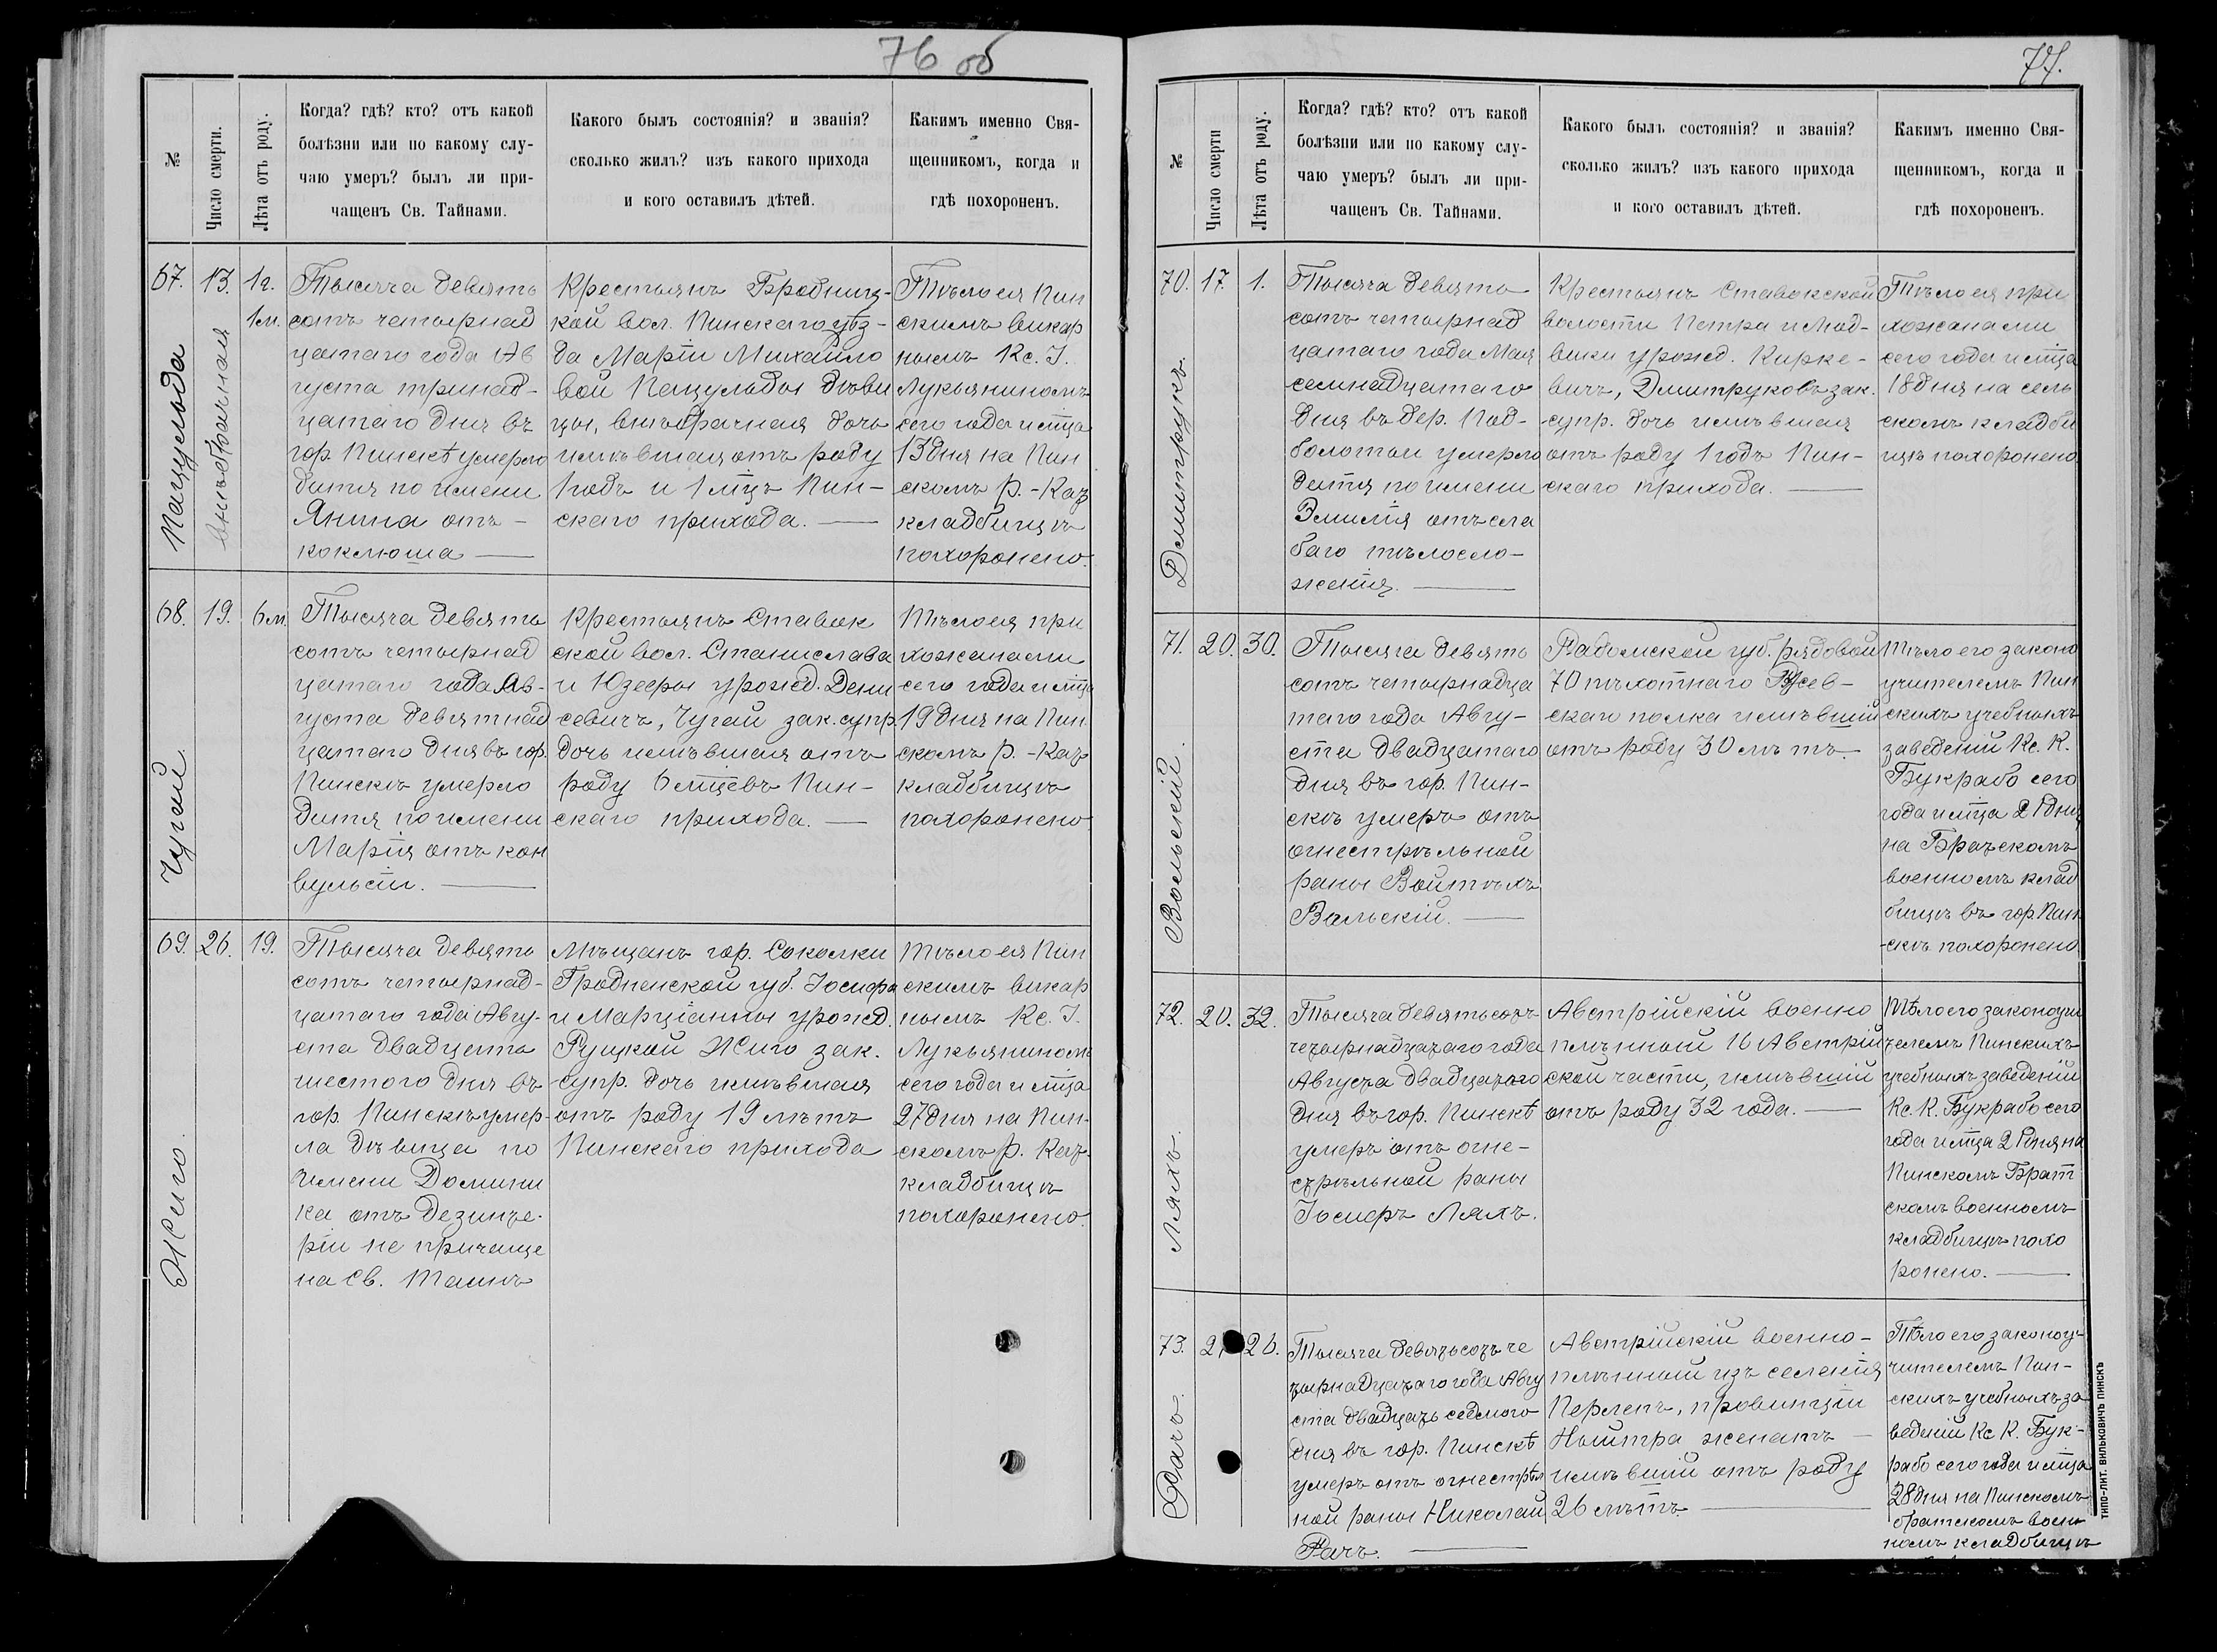 76 об
№
Число смерти.
Лѣта отъ роду.
Когда? гдѣ? кто? отъ какой
болѣзни или по какому слу-
чаю умеръ? былъ ли при-
чащенъ Св. Тайнами.
Какого былъ состоянія? и званія?
сколько жилъ? изъ какого прихода
и кого оставилъ дѣтей.
Какимъ именно Свя-
щенникомъ, когда и
гдѣ похороненъ.
67.
Пацульода
13.
внѣбрачная
1г.
1м.
Тысяча девять
сотъ четырнад
цатаго года Ав
густа тринад-
цатаго дня въ
гор. Пинскѣ умерло
дитя по имени
Янина отъ -
коклюша
Крестьянъ Бродниц-
кой вол. Пинскаго уѣз-
да Маріи Михайло
вой Пацульды дѣви
цы, внѣбрачная дочь
имѣвшая отъ роду
1 годъ и 1 мцъ Пин-
скаго прихода.
Тѣло ея Пин
скимъ викар
нымъ Кс. І.
Лукьяниномъ
сего года и мца
13 дня на Пин
скомъ Р.-Каз
кладбищѣ
похоронено.
68.
Чугай
19.
6 м.
Тысяча девять
сотъ четырнад
цатаго года Ав-
густа девятнад
цатаго дня въ гор.
Пинскѣ умерло
дитя по имени
Марія отъ кон
вульсіи.
Крестьянъ Ставок
ской вол. Станислава
и Юзефы урожд. Дени
севичъ, Чугай зак. супр.
дочь имѣвшая отъ
роду 6 мцевъ Пин-
скаго прихода.
Тѣло ея при
хожанами
сего года и мца
19 дня на Пин
скомъ Р.-Каз
кладбищѣ
похоронено
69.
Жиго.
26.
19.
Тысяча девять
сотъ четырнад-
цатаго года Авгу-
ста двадцать
шестого дня въ
гор. Пинскѣ умер-
ла дѣвица по
имени Домини
ка отъ дезинте-
ріи не причаще
на Св. Таинъ
Мѣщанъ гор. Соколки
Гродненской губ. Іосифа
и Марціанны урожд.
Руцкой Жиго зак.
супр. дочь имѣвшая
отъ роду 19 лѣтъ
Пинскаго прихода
Тѣло ея Пин
скимъ викар
нымъ Кс. І.
Лукьяниномъ
сего года и мца
27 дня на Пин-
скомъ Р. Каз.
кладбищѣ
похоронено.
77.
№
Число смерти
Лѣта отъ роду.
Когда? гдѣ? кто? отъ какой
болѣзни или по какому слу-
чаю умеръ? былъ ли при-
чащенъ Св. Тайнами.
Какого былъ состоянія? и званія?
сколько жилъ? изъ какого прихода
и кого оставилъ дѣтей.
Какимъ именно Свя-
щенникомъ, когда и
гдѣ похороненъ.
70.
Дмитрукъ
17.
1.
Тысяча девять
сотъ четырнад
цатаго года Мая
семнадцатаго
дня въ дер. Под-
болотьи умерло
дитя по имени
Эмилія отъ сла
баго тѣлосло-
женія.
Крестьянъ Ставокской
волости Петра и Люд-
вики урожд. Кирке-
вичъ, Дмитруковъ зак.
супр. дочь имѣвшая
отъ роду 1 годъ Пин-
скаго прихода.
Тѣло ея при
хожанами
сего года и мца
18 дня на сель
скомъ кладби
щѣ похоронено
71.
Вольскій.
20.
30.
Тысяча девять
сотъ четырнадца
таго года Авгу-
ста двадцатаго
дня въ гор. Пин-
скѣ умеръ отъ
огнестрѣльной
раны Войтѣхъ
Вальскій.
Радомской губ. рядовой
70 пѣхотнаго
скаго полка имѣвшій
отъ роду 30 лѣтъ.
Тѣло его законо
учителемъ Пин
скихъ учебныхъ
заведеній Кс. К.
Букрабо сего
года и мца 21 дня
на Братскомъ
военномъ клад
бищѣ въ гор. Пин
-скѣ похоронено
72.
Ляхъ.
20.
32.
Тысяча девятьсотъ
четырнадцатаго года
Августа двадцатаго
дня въ гор. Пинскѣ
умеръ отъ огне-
стрѣльной раны
Іосифъ Ляхъ.
Австрійскій военно
плѣнный 16 Австрій
ской части, имѣвшій
отъ роду 32 года.
Тѣло его законоучи
телемъ Пинскихъ
учебныхъ заведеній
Кс. К. Букрабо сего
года и мца 21 дня на
Пинскомъ Брат
скомъ военномъ
кладбищѣ похо
ронено.
73.
Фачъ.
26.
Тысяча девятьсотъ че
тырнадцатаго года Авгу
ста двадцать седмого
дня въ гор. Пинскѣ
умеръ отъ огнестрѣл
ной раны Николай
Фачъ.
Австрійскій военно-
плѣнный изъ селенія
Перленъ, провинціи
Ныитра женатъ
имѣвшій отъ роду
26 лѣтъ.
Тѣло его законоу-
чителемъ Пин-
скихъ учебныхъ за
веденій Кс К. Бук-
рабо сего года и мца
28 дня на Пинскомъ
братскомъ воен
номъ кладбищѣ
ТИПО-ЛИТ. ВИЛЬКОВИЧЪ ПИНСКЪ